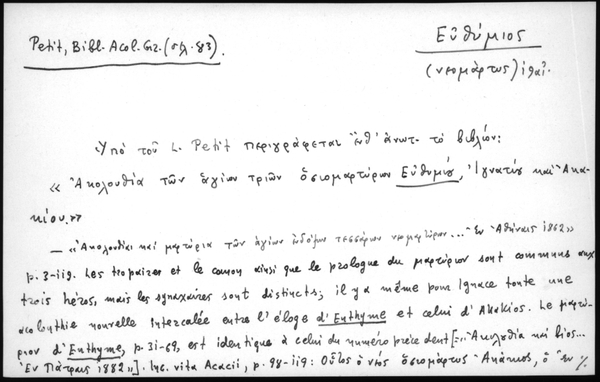 Petit, Bibl. Acol. Gr. (σελ. 83).
Εὐθύμιος
(νεομάρτυς)
Ὑπὸ τοῦ L. Petit περιγράφεται ἔνθ' ἀνωτ. τὸ βιβλίον:
«Ἀκολουθία τῶν ἁγίων τριῶν ὁσιομαρτύρων Εὐθυμίου, Ἰγνατίου καὶ Ἀκα-
κίου.»
— «Ἀκολουθίαι καὶ μαρτύρια τῶν ἁγίων ἐνδόξων τεσσάρων νεομαρτύρων... Ἐν Ἀθήναις 1862»
p. 3-119. Les tropaires et le canon ainsi que le prologue du martyrion sont communs aux
trois héros, mais les synaxaires sont distincts; il y a même pour Ignace toute une
acolouthie nouvelle intercalée entre l'éloge d'Euthyme et celui d'Akakios. Le marty-
rion d'Euthyme, p. 31-69, est identique à celui du numéro précédent [= Ἀκολουθία καὶ βίος...
Ἐν Πάτραις 1882»]. Inc. vita Acacii, p. 98-119: Οὗτος ὁ νέος ὁσιομάρτυς Ἀκάκιος, ὁ ἐν %.